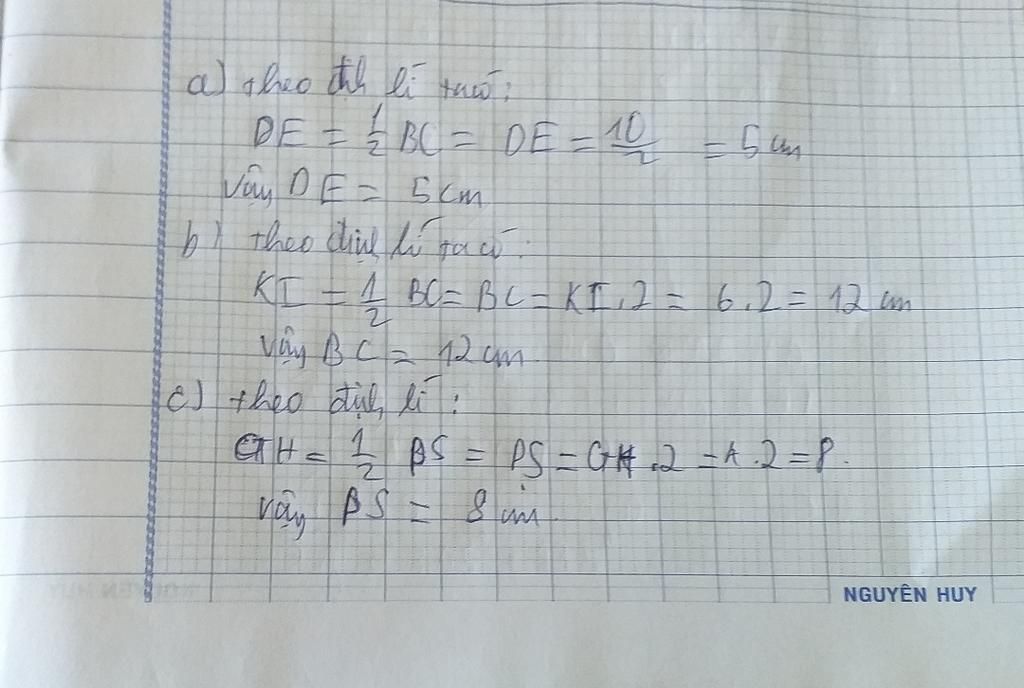 a) theo địh lí ta có:
DE = 1/2 BC = DE = 10/2 = 5 cm
Vậy DE = 5cm
b) theo định lí ta có:
KI = 1/2 BC = BC = KI.2 = 6.2 = 12 cm
Vậy BC = 12 cm.
c) theo định lí:
GH = 1/2 BS = BS = GH.2 = 4.2 = 8.
Vậy BS = 8 cm.
NGUYÊN HUY